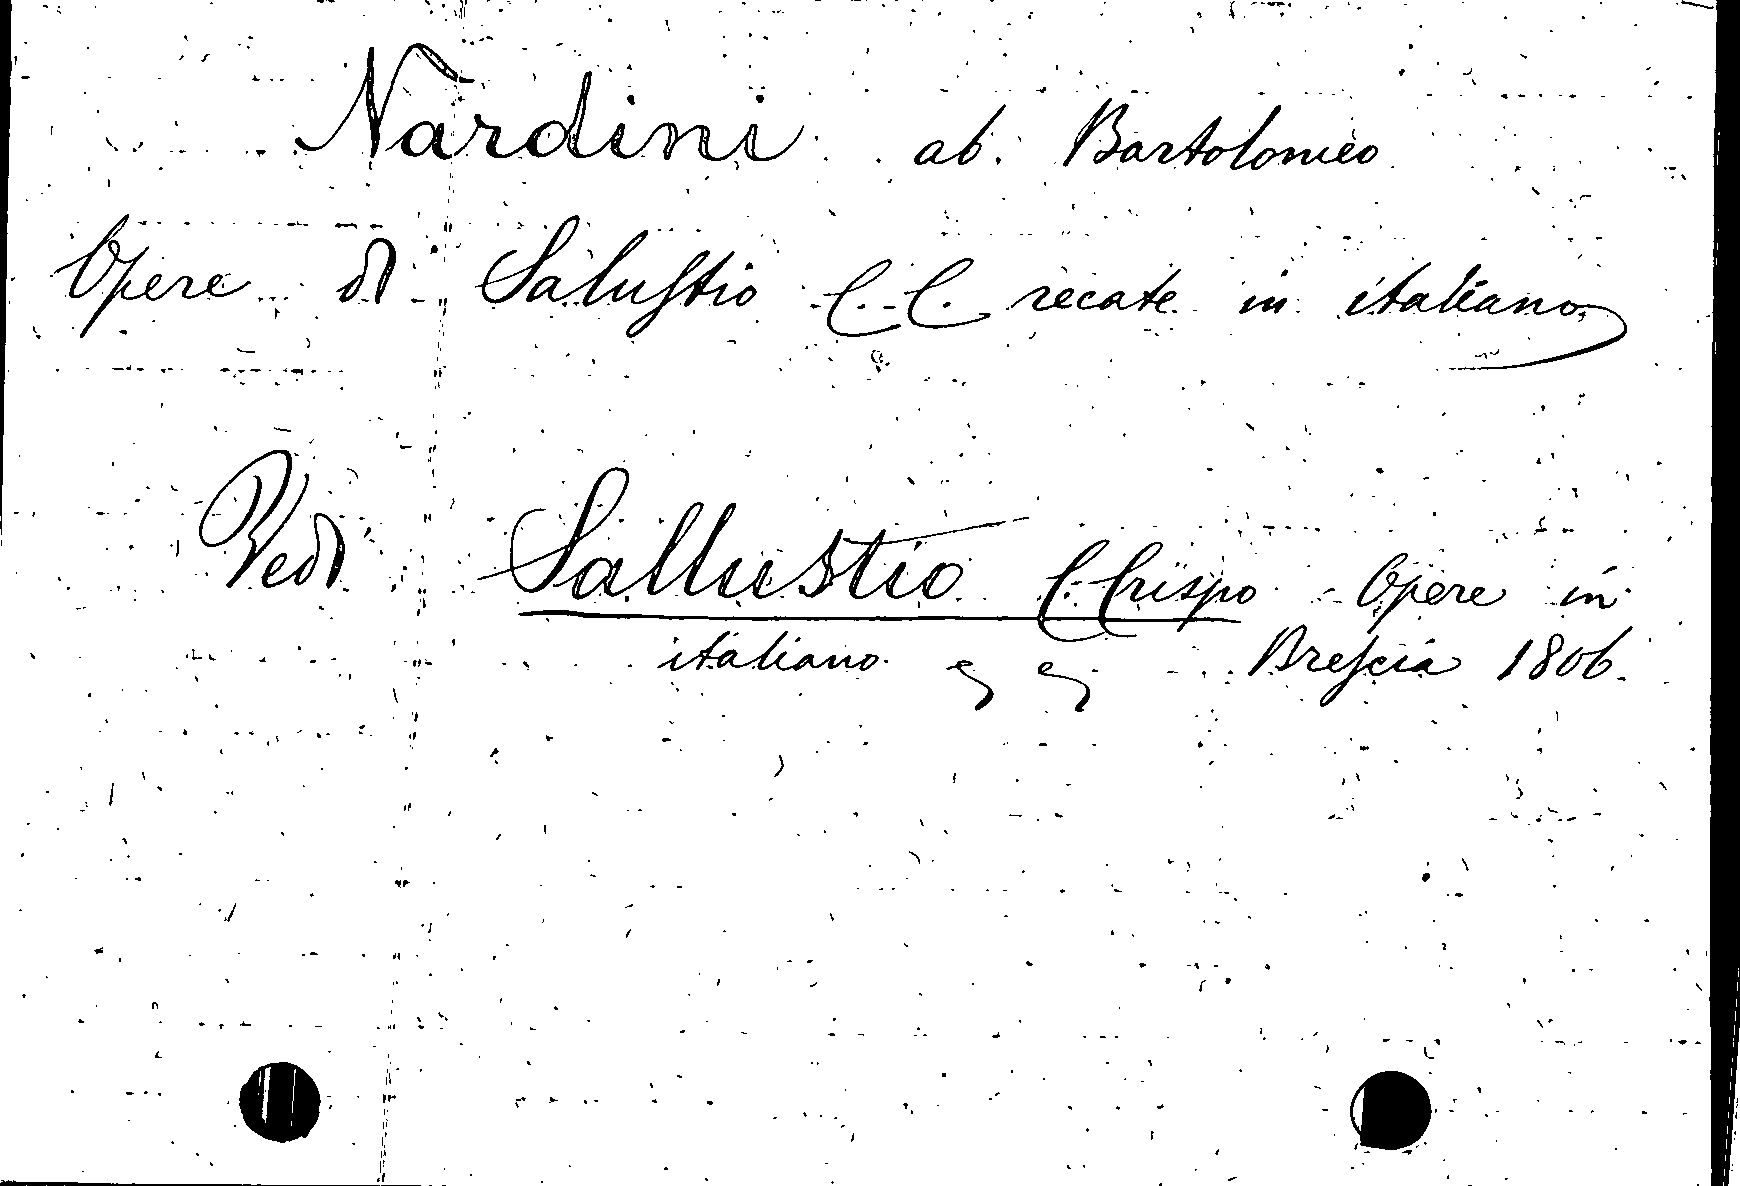 Nardini ab. Bartolomeo
Opere di Salustio C. C. recate in italiano
Vedi Sallustio C. Crispo Opere in
italiano Brescia 1806.